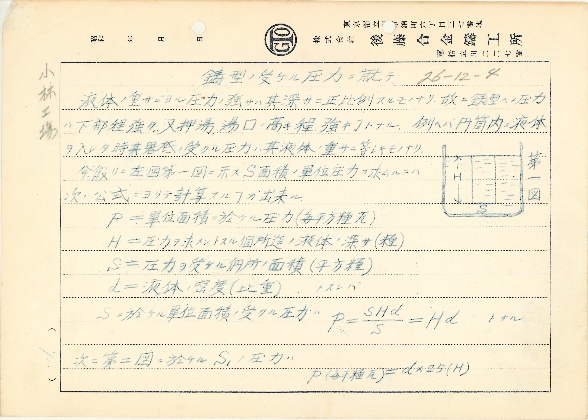 株式會社 後藤合金鑄工所
昭和 年 月 日
GTO
小林工場
鑄型ノ受ケル圧力ニ就テ 26-12-4
液体ノ重サニヨル圧力ノ強サハ其深サニ正比例スルモノナリ、故ニ鑄型ヘノ圧力
ハ下部程強ク、又押湯、湯口ノ高キ程強キコトナル、例ヘバ円筒内ニ液体
ヲ入レタ時其基底ノ受クル圧力ハ其液体ノ重サニ等シキモノナリ、
今仮リニ左図第一図ニ示スS面積ノ單位圧力ヲ求ムルニハ
次ノ公式ニヨリテ計算スルコトガ出来ル
P=單位面積ニ於ケル圧力(毎平方種瓦)
H=圧力ヲ求メントスル個所迄ノ液体ノ深サ(種)
S=圧力ヲ受ケル個所ノ面積(平方種)
d=液体ノ密度(比重) トスレバ
Sニ於ケル單位面積ノ受クル圧力ハ P=SHd/S=Hd トナル
次ニ第二図ニ於ケル S₁ノ圧力ハ
P(毎平方種瓦)=d×25(H)
第一図
H
S